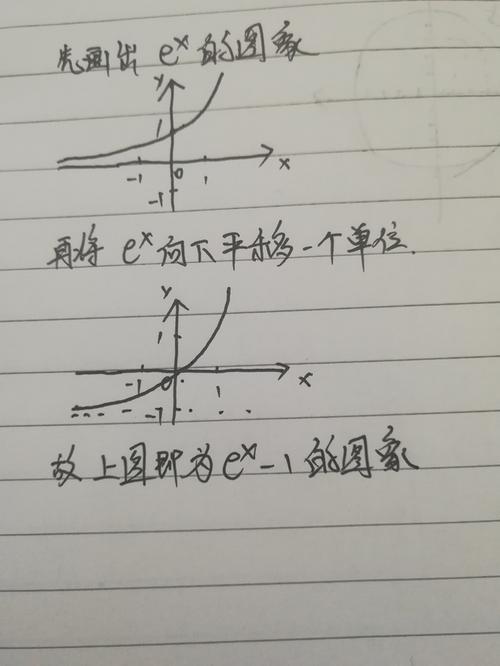 先画出 eˣ 的图象
y
1
-1 0 1 x
-1
再将 eˣ 向下平移一个单位.
y
1
-1 0 1 x
-1
故上图即为 eˣ-1 的图象